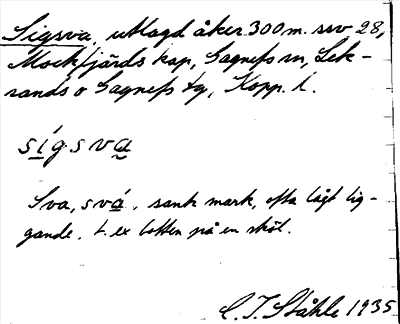 Sigsva, utlagd åker 300 m. ssv 28,
Mockfjärds kap, Gagnefs sn, Lek-
sands o Gagnefs tg, Kopp. l.
sígsva
Sva, svá, sank mark, ofta lågt lig-
gande, t. ex botten på en sköl.
C. I. Ståhle 1935